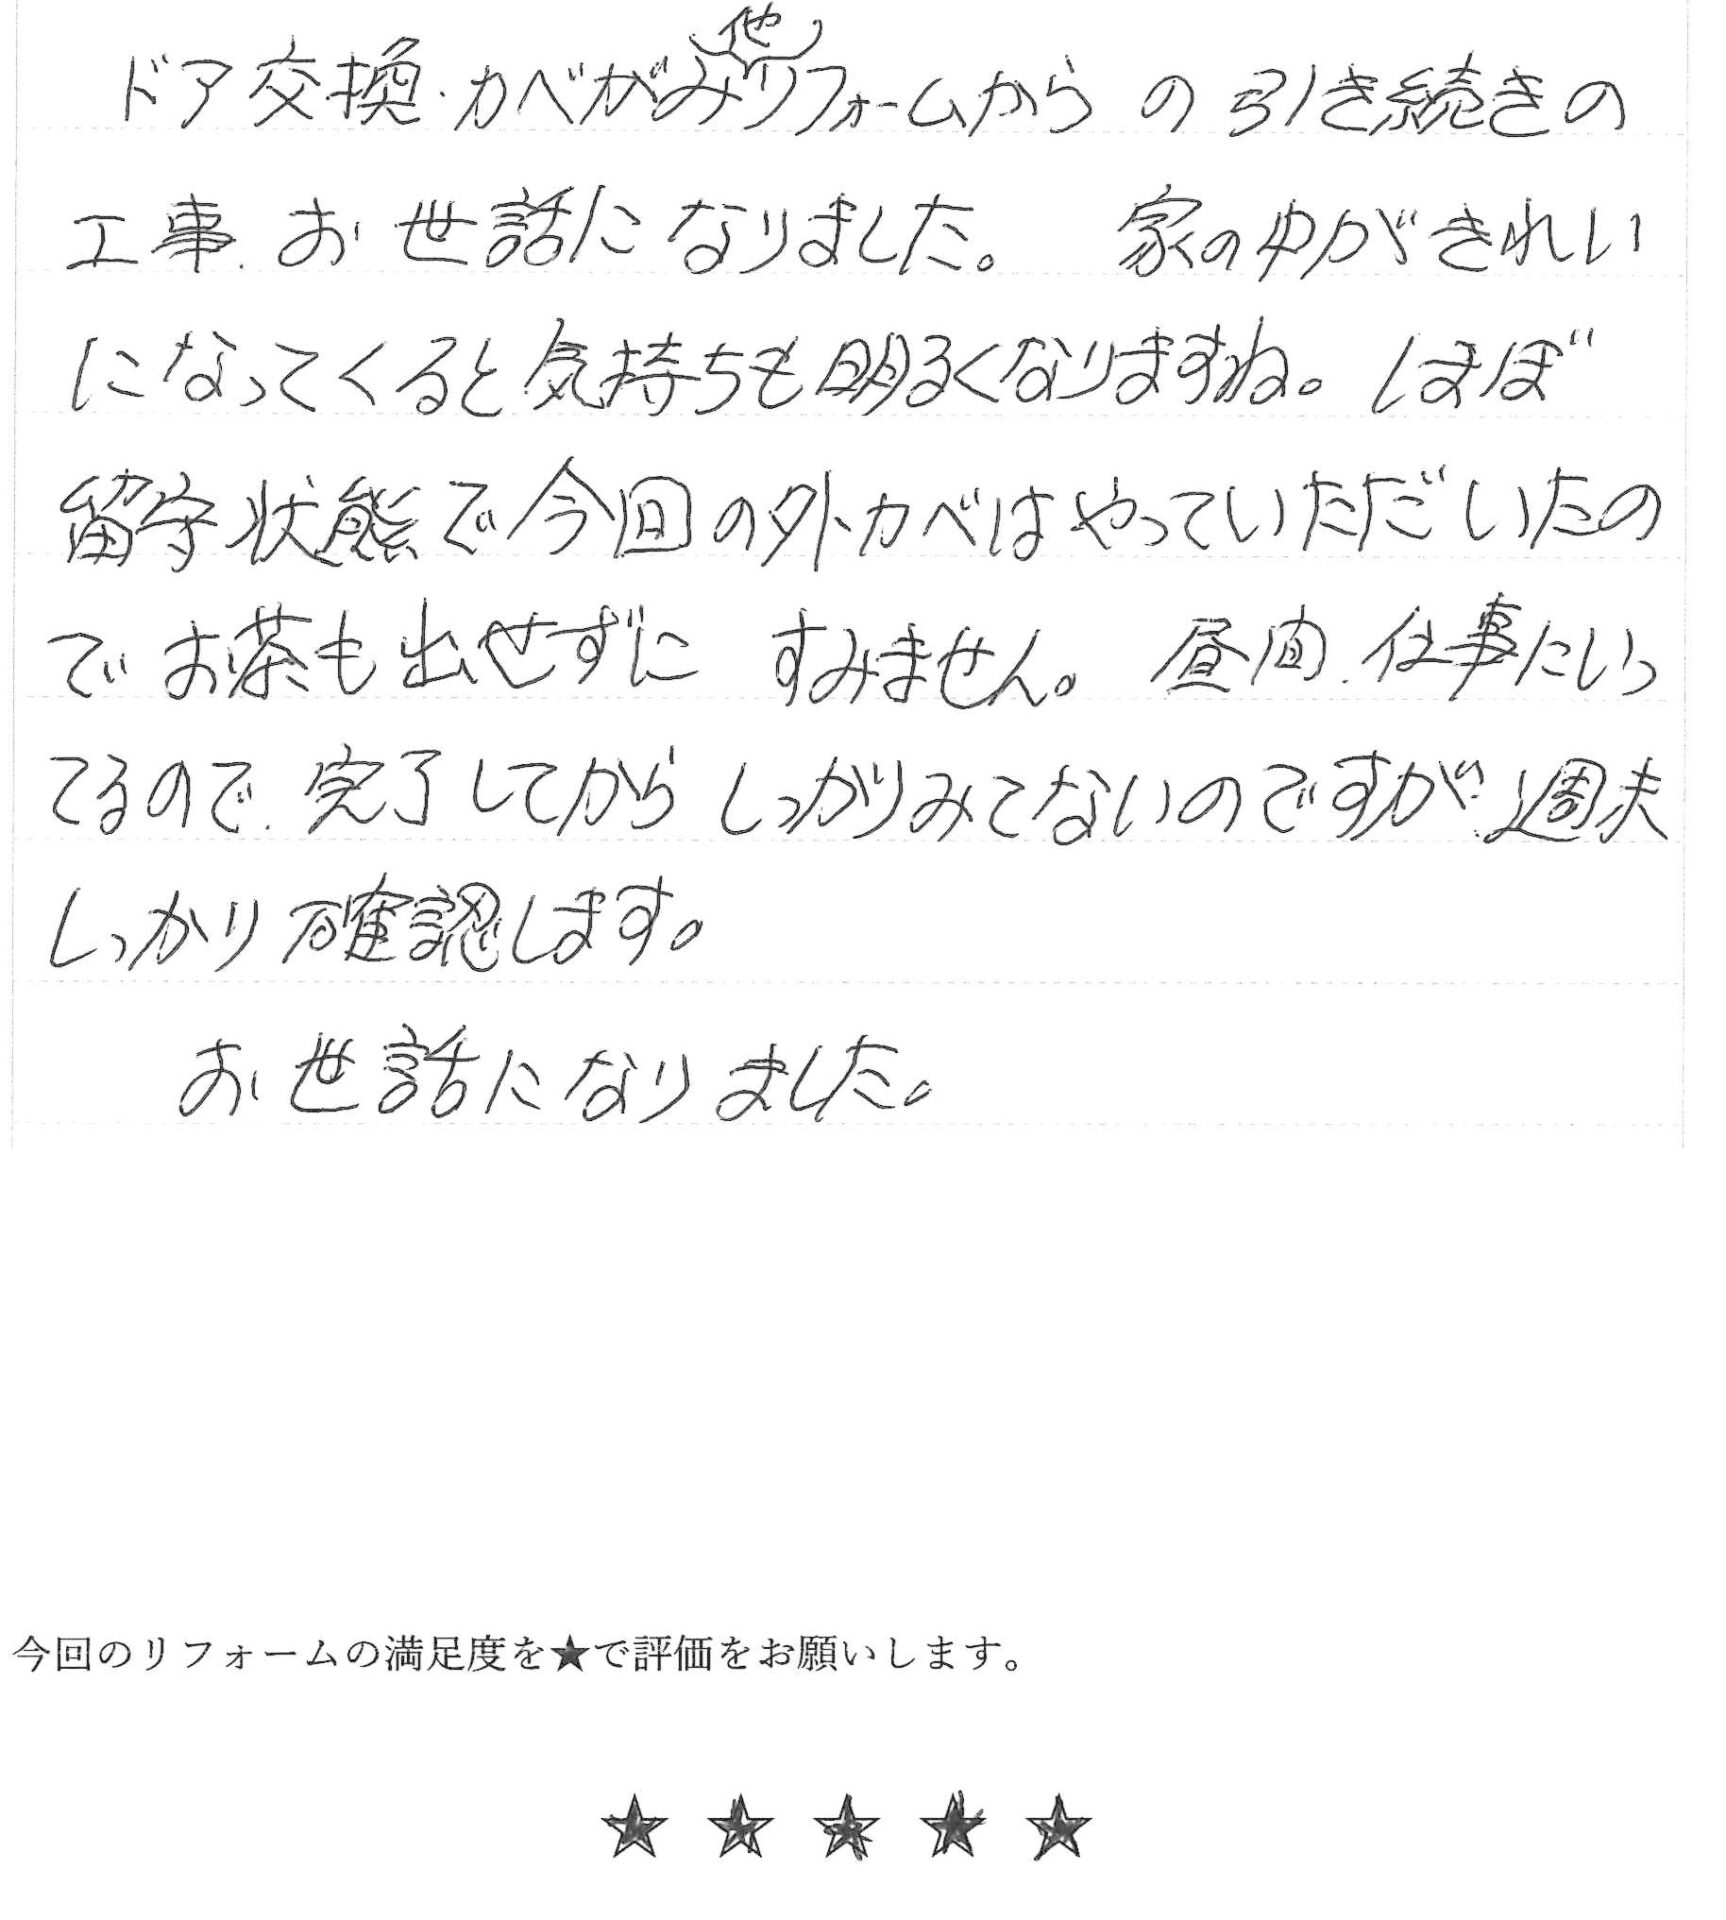 ドア交換・カベがみ他リフォームからの引き続きの
工事、お世話になりました。 家の中がきれい
になってくると気持ちも明るくなりますね。ほぼ
留守状態で今回の外カベはやっていただいたの
でお茶も出せずに すみません。 昼間、仕事にいっ
てるので、完了してからしっかりみてないのですが、週末
しっかり確認します。
お世話になりました。
今回のリフォームの満足度を★で評価をお願いします。
★ ★ ★ ★ ★